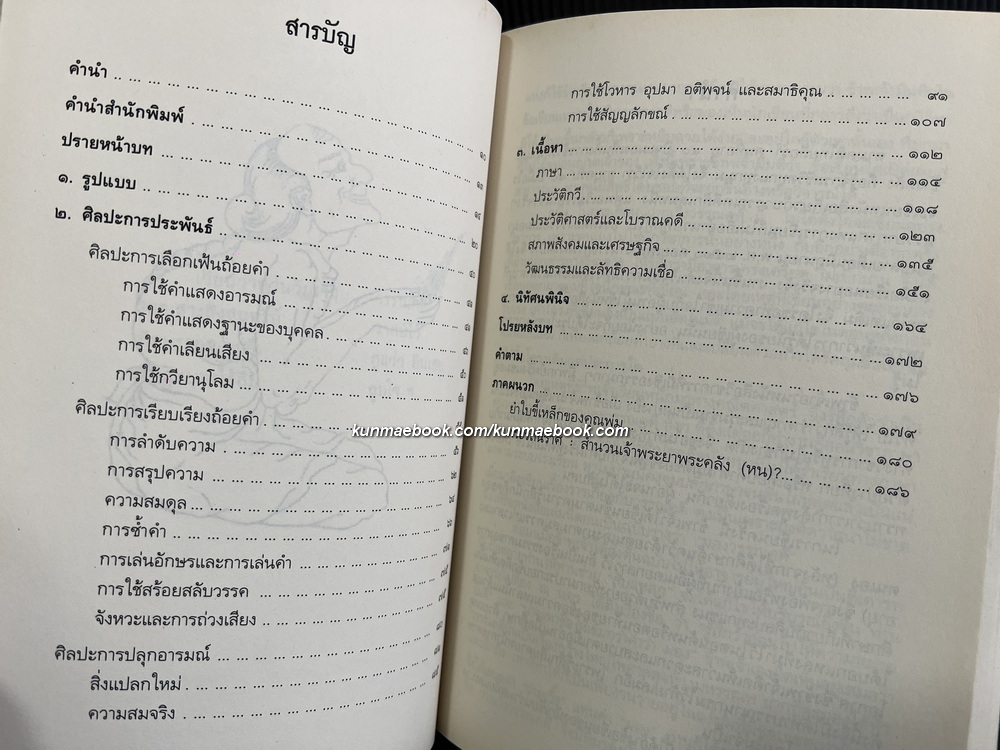 สารบัญ
คำนำ
คำนำสำนักพิมพ์
ปรายหน้าบท
๑. รูปแบบ
๒. ศิลปะการประพันธ์
ศิลปะการเลือกเฟ้นถ้อยคำ
การใช้คำแสดงอารมณ์
การใช้คำแสดงฐานะของบุคคล
การใช้คำเลียนเสียง
การใช้กวียานุโลม
ศิลปะการเรียบเรียงถ้อยคำ
การลำดับความ
การสรุปความ
ความสมดุล
การซ้ำคำ
การเล่นอักษรและการเล่นคำ
การใช้สร้อยสลับวรรค
จังหวะและการถ่วงเสียง
ศิลปะการปลุกอารมณ์
สิ่งแปลกใหม่
ความสมจริง
การใช้โวหาร อุปมา อติพจน์ และสมาธิคุณ ๙๑
การใช้สัญญลักขณ์ ๑๐๗
๓. เนื้อหา ๑๑๒
ภาษา ๑๑๔
ประวัติกวี ๑๑๘
ประวัติศาสตร์และโบราณคดี ๑๒๓
สภาพสังคมและเศรษฐกิจ ๑๓๕
วัฒนธรรมและลัทธิความเชื่อ ๑๕๑
๔. นิทัศนพินิจ ๑๖๔
โปรยหลังบท ๑๗๒
คำตาม ๑๗๖
ภาคผนวก ๑๗๙
ยำใบขี้เหล็กของคุณพุ่ม ๑๘๐
: สำนวนเจ้าพระยาพระคลัง (หน)? ๑๘๖
kunmaebook.com/kunmaebook.com